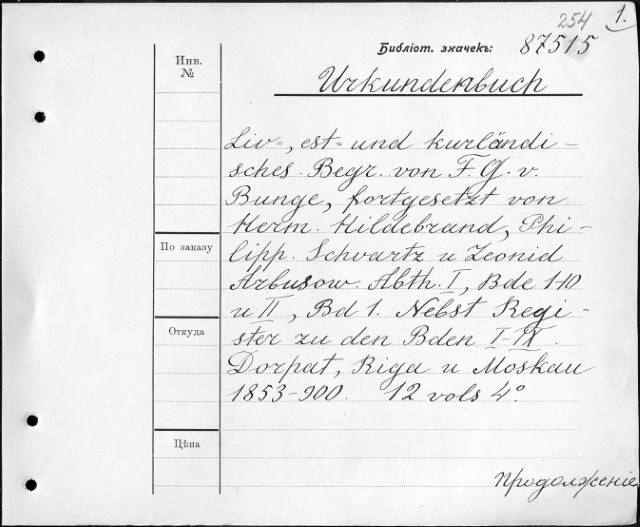 254 1.
Библіот. значекъ: 87515
Инв.
№
Urkundenbuch
Liv-, est- und kurländi-
sches. Begr. von F. G. v.
Bunge, fortgesetzt von
Herm. Hildebrand, Phi-
lipp. Schwartz u Leonid
Arbusow. Abth. I, Bde 1-10
u II, Bd 1. Nebst Regi-
ster zu den Bden I-IX.
Dorpat, Riga u Moskau
1853-900. 12 vols 4°.
По заказу
Откуда
Цѣна
продолженіе